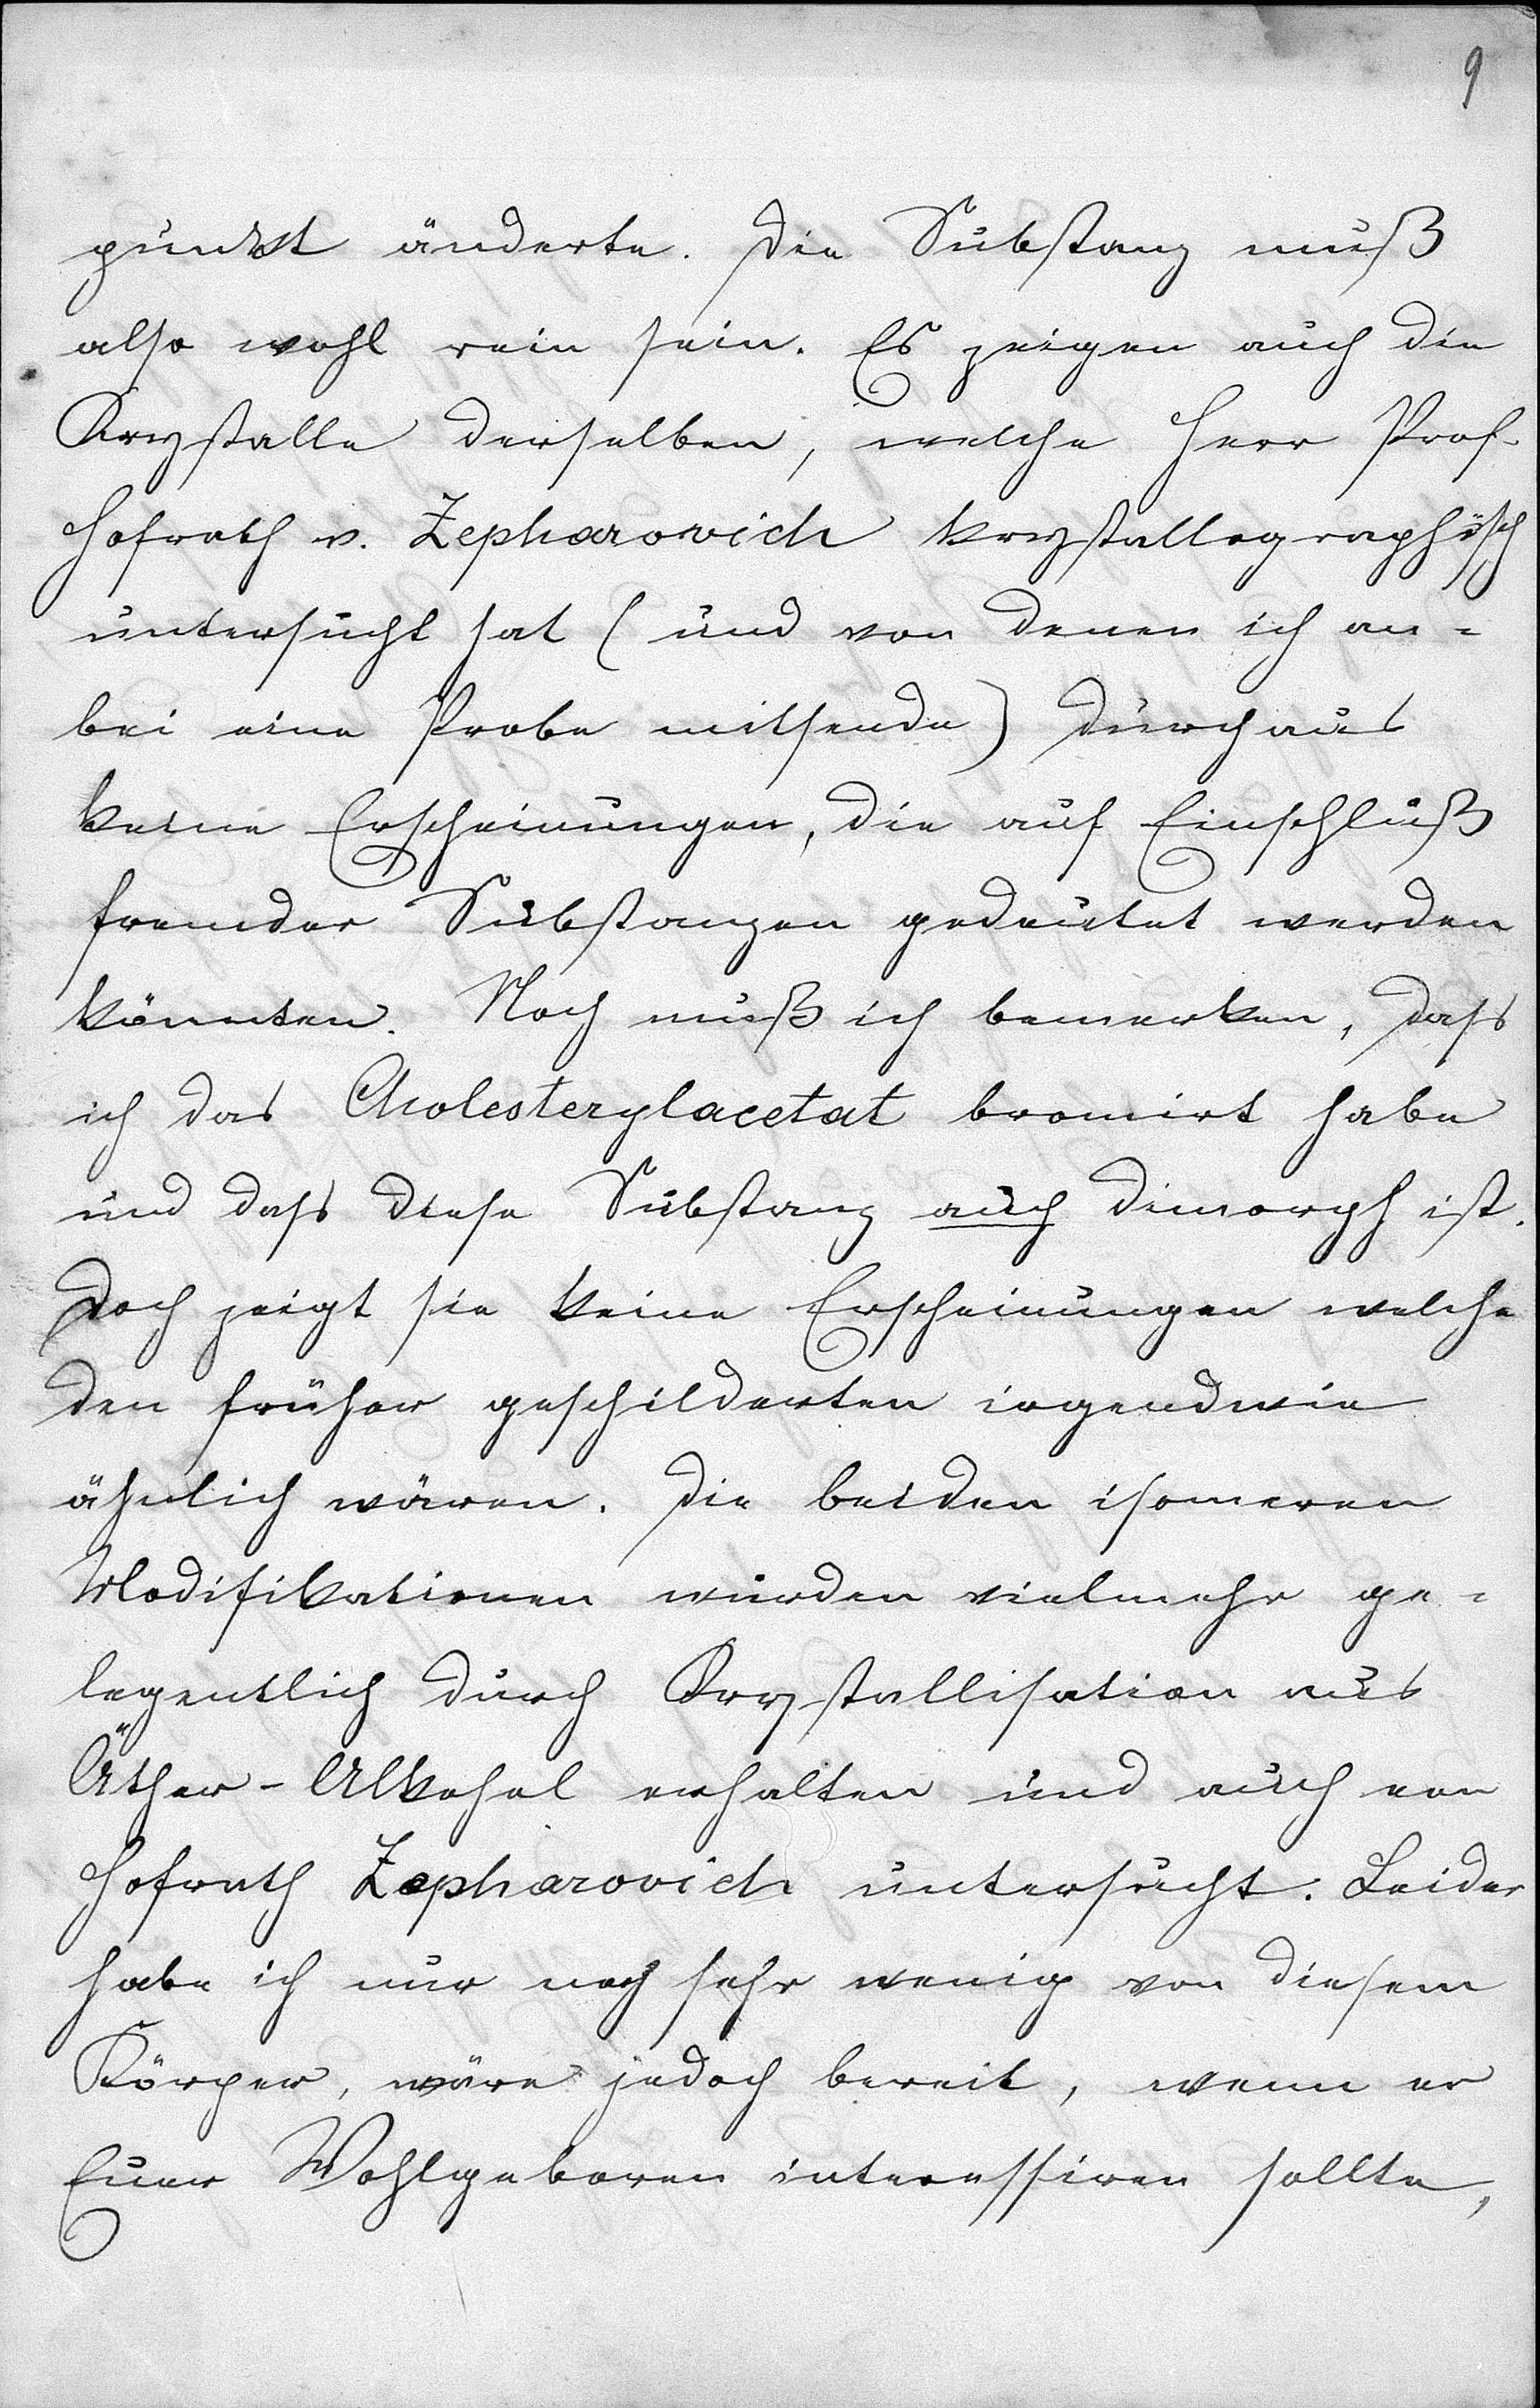 9
punkt änderte. Die Substanz muß
also wohl rein sein. Es zeigen auch die
Krystalle derselben, welche Herr Prof.
Hofrath v. Zepharovich krystallographisch
untersucht hat (und von denen ich an-
bei eine Probe mitsende) durchaus
keine Erscheinungen, die auf Einschluß
fremder Substanzen gedeutet werden
könnten. Noch muß ich bemerken, dass
ich das Cholesterylacetat bromirt habe
und dass diese Substanz auch dimorph ist.
Doch zeigt sie keine Erscheinungen welche
den früher geschilderten irgendwie
ähnlich wären. Die beiden isomeren
Modifikationen wurden vielmehr ge-
legentlich durch Krystallisation aus
Äther-Alkohol erhalten und auch von
Hofrath Zepharovich untersucht. Leider
habe ich nur noch sehr wenig von diesem
Körper, wäre jedoch bereit, wenn er
Euer Wohlgeboren interessiren sollte,